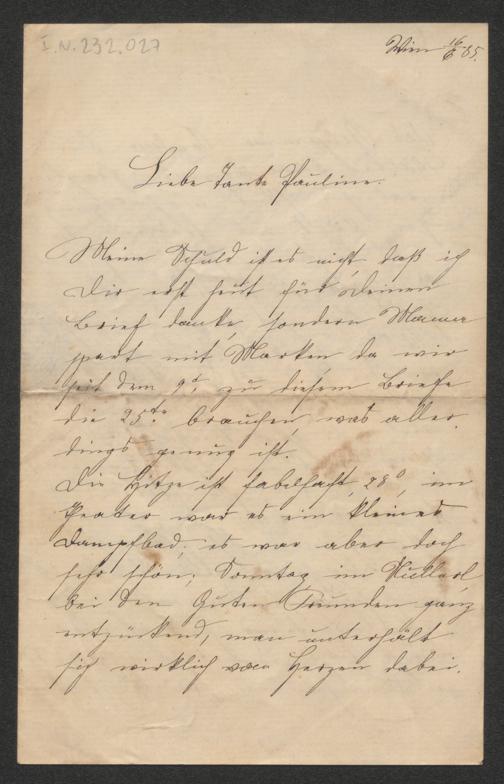 I.N. 232.027
Wien 16/6 85.
Liebe Tante Pauline.
Meine Schuld ist es nicht, daß ich
Dir erst heut für Deinen
Brief danke, sondern Mama
spart mit Marken da wir
seit dem 9t. zu diesem Briefe
die 25te brauchen, was aller-
dings genug ist.
Die Hitze ist fabelhaft, 28°, im
Prater war es ein kleines
Dampfbad; es war aber doch
sehr schön; Sonntag im
bei den Guten Freunden ganz
entzückend, man unterhält
sich wirklich von Herzen dabei.